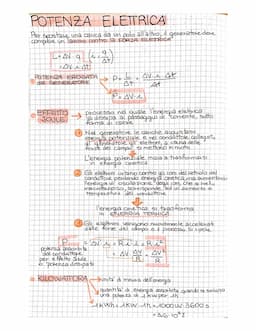 POTENZA ELETTRICA
Per spostare una carica da un polo all'altro, il generatore deve
compiere un lavoro contro la FORZA ELETTRICA
L = ΔV · q (i = q/Δt)
= ΔV · i · Δt
POTENZA EROGATA DA GENERATORE
P = L/Δt = ΔV · i · Δt/Δt
P = ΔV · i
EFFETTO JOULE
processo nel quale l'energia elettrica
si dissipa al passaggio di corrente, sotto
forma di calore
Nel generatore le cariche acquistano
energia potenziale e nei conduttori collegati
al generatore gli elettroni, a causa delle
forze del campo si mettono in moto
L'energia potenziale iniziale si trasforma
in energia cinetica
Gli elettroni urtano contro gli ioni del reticolo del
conduttore perdendo energia cinetica, ma aumentano
l'energia di vibrazione degli ioni, che a livello
macroscopico, corrisponde ad un aumento di
temperatura del conduttore
l'energia cinetica si trasforma
in ENERGIA TERMICA
Gli elettroni vengono nuovamente accelerati
dalle forze del campo e il processo si ripete
P = ΔV · i = R i · i = R i²
potenza assorbita
dal conduttore
per effetto Joule
o potenza dissipata
= ΔV · ΔV/R = ΔV²/R
KILOWATTORA
unità di misura dell'energia
quantità di energia assorbita quando si sviluppa
una potenza di 1 kW per 1h
1 kWh = 1 kW · 1h = 1000 W · 3600 s
= 3,6 · 10⁶ J